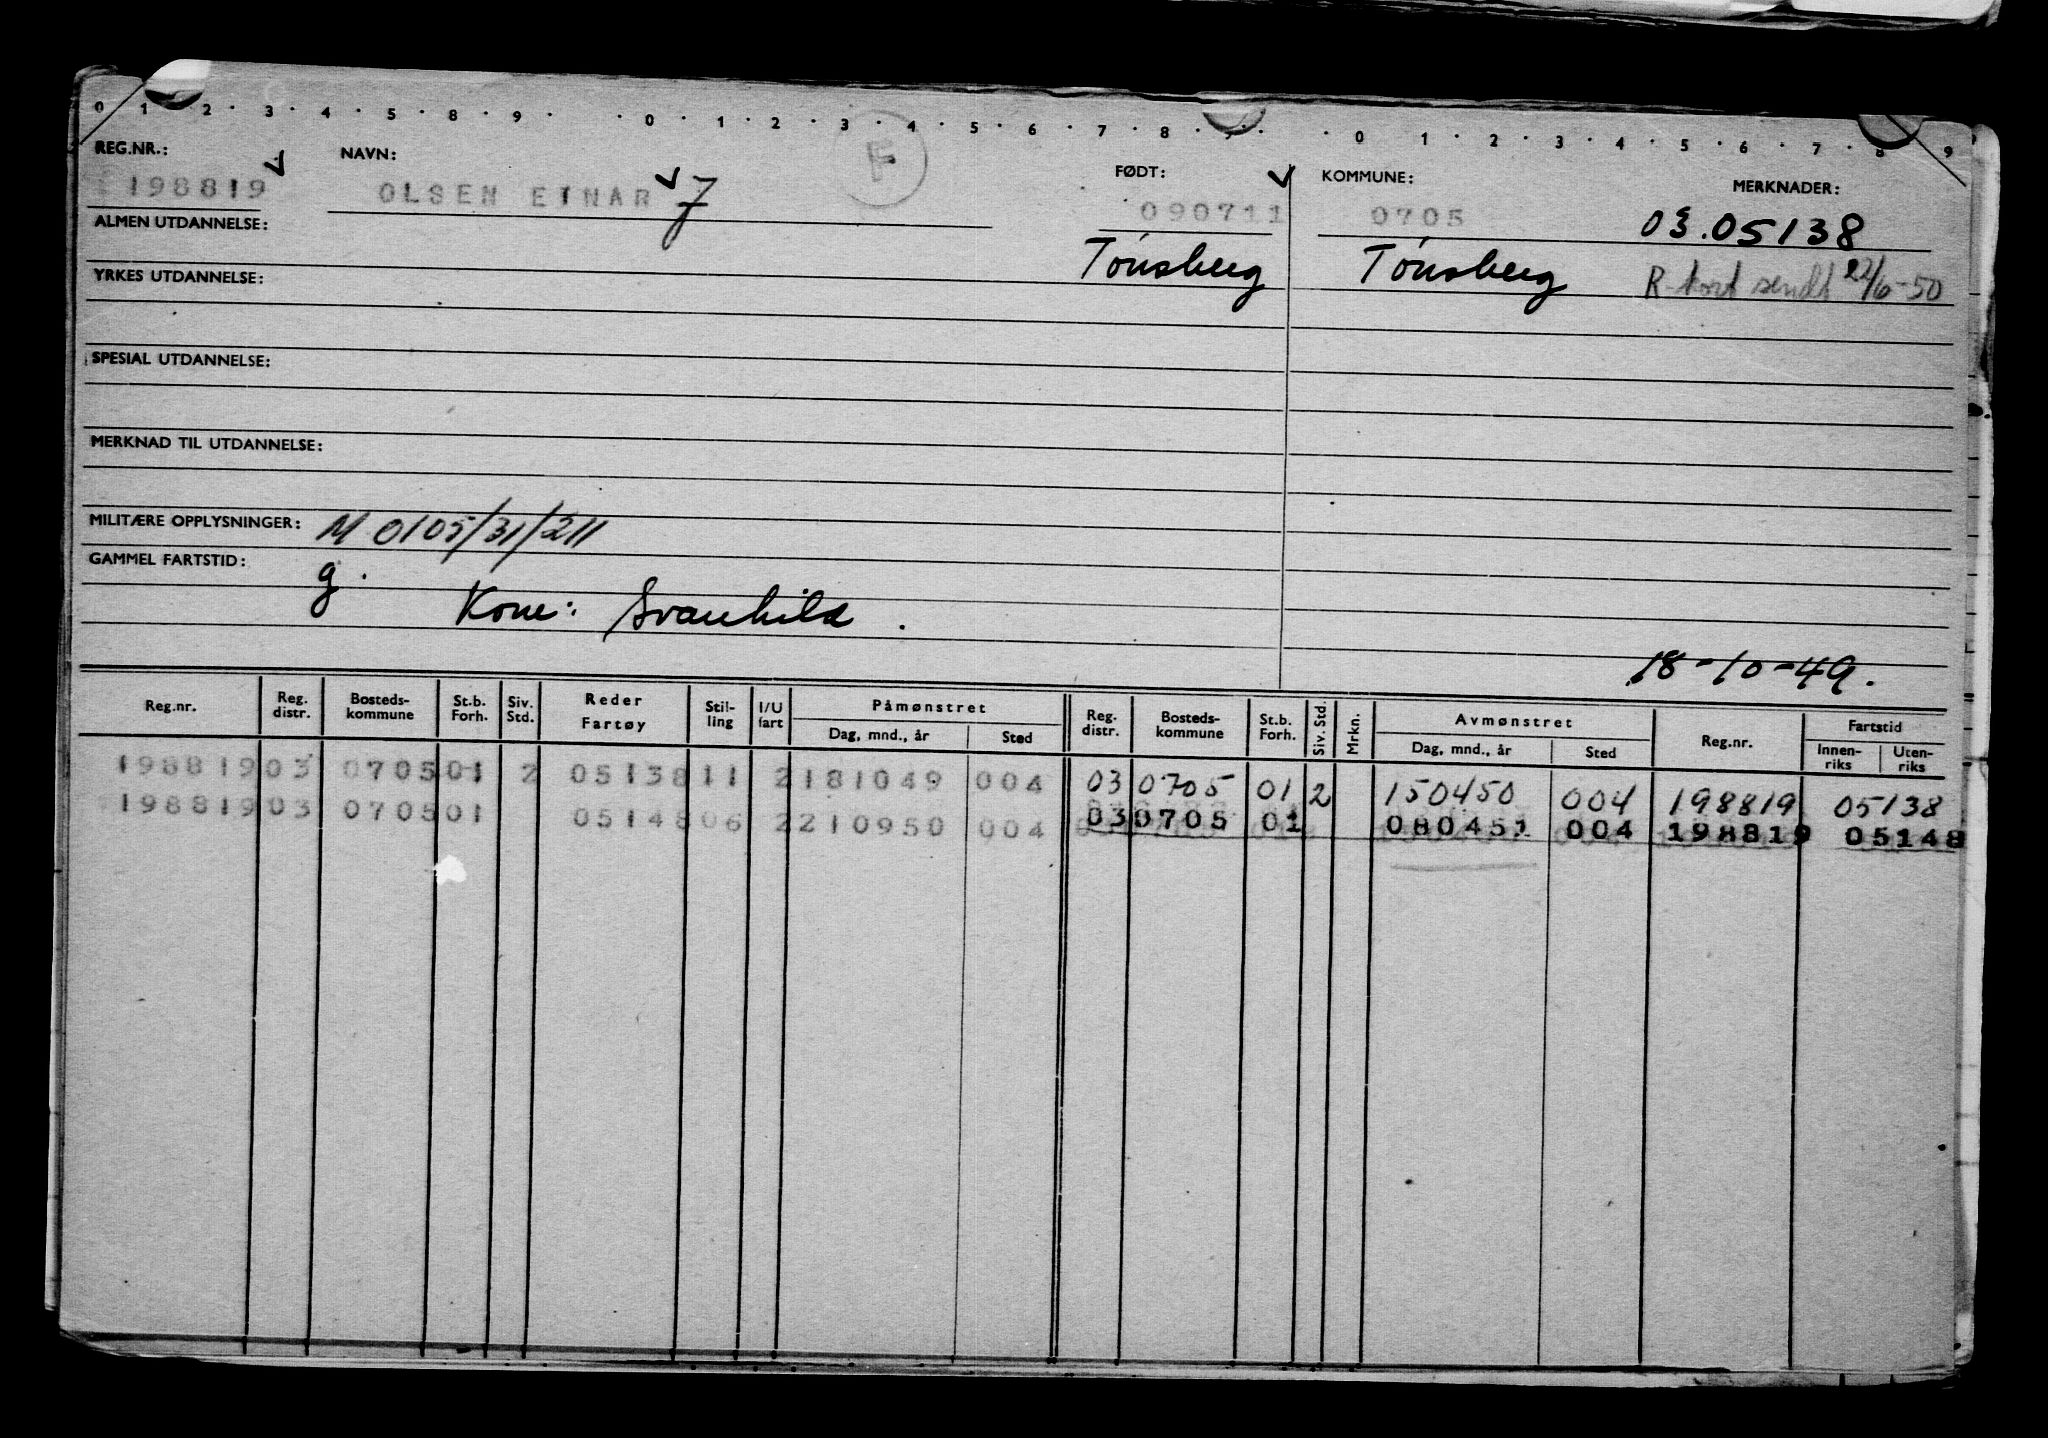 0 1 · 2 · 3 · 4 · 5 · 8 · 9 · · 0 · 1 · 2 · 3 · 4 · 5 · 6 · 7 · 8 · 9 · · 0 1 · 2 · 3 · 4 · 5 · 6 · 7 · 8 9
REG.NR.: NAVN: F FØDT: KOMMUNE: MERKNADER:
198819 OLSEN EINAR 7 090711 0705 03.05138
ALMEN UTDANNELSE: Tönsberg Tönsberg R-kort sendt 22/6-50
YRKES UTDANNELSE:
SPESIAL UTDANNELSE:
MERKNAD TIL UTDANNELSE:
MILITÆRE OPPLYSNINGER: M 0105/31/211
GAMMEL FARTSTID: g.
Kone: Svanhild.
18-10-49.
Reg.nr. Reg. distr. Bosteds- kommune St.b. Forh. Siv. Std. Reder Fartøy Stil- ling I/U fart Påmønstret Dag, mnd., år Sted Reg. distr. Bosteds- kommune St.b. Forh. Siv. Std. Mrkn. Avmønstret Dag, mnd., år Sted Reg.nr. Fartstid Innen- riks Uten- riks
198819 03 0705 01 2 05138 11 2 181049 004 03 0705 01 2 150450 004 198819 05138
198819 03 0705 01 05148 06 2 210950 004 03 0705 01 080451 004 198819 05148